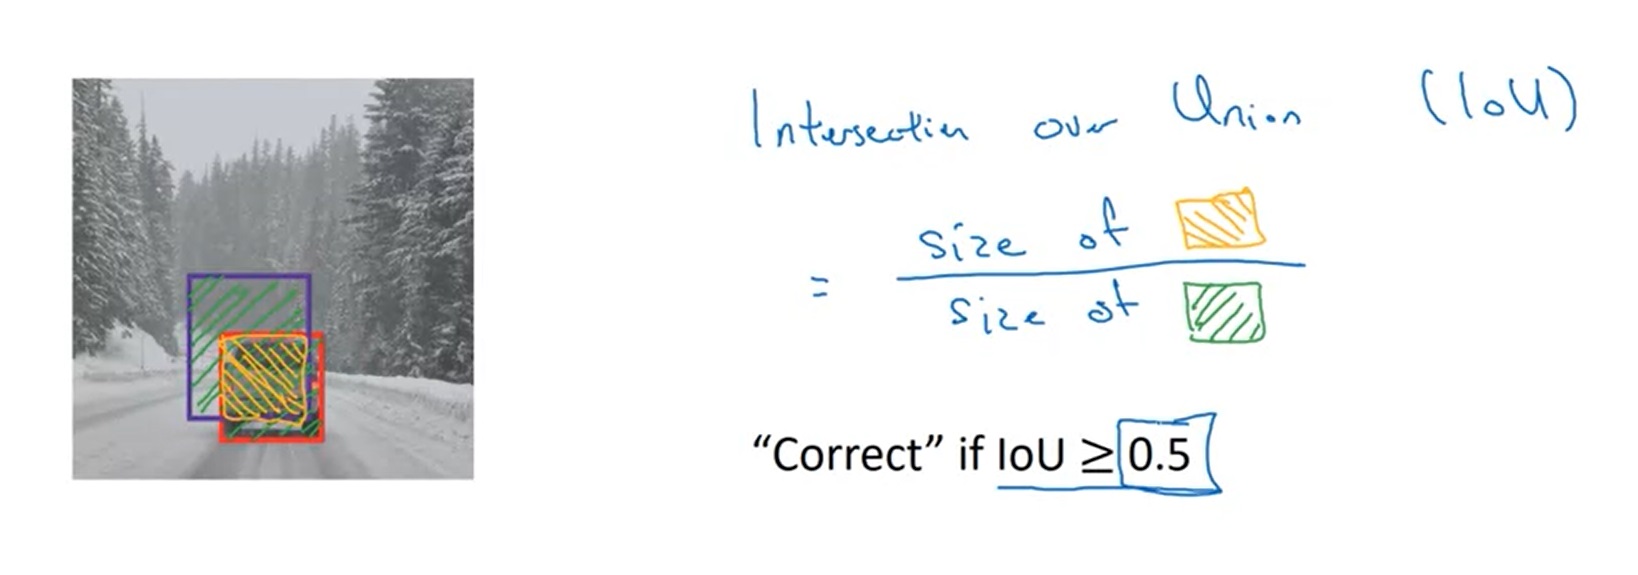 Intersection over Union (IoU)
= size of
size of
“Correct” if IoU ≥ 0.5